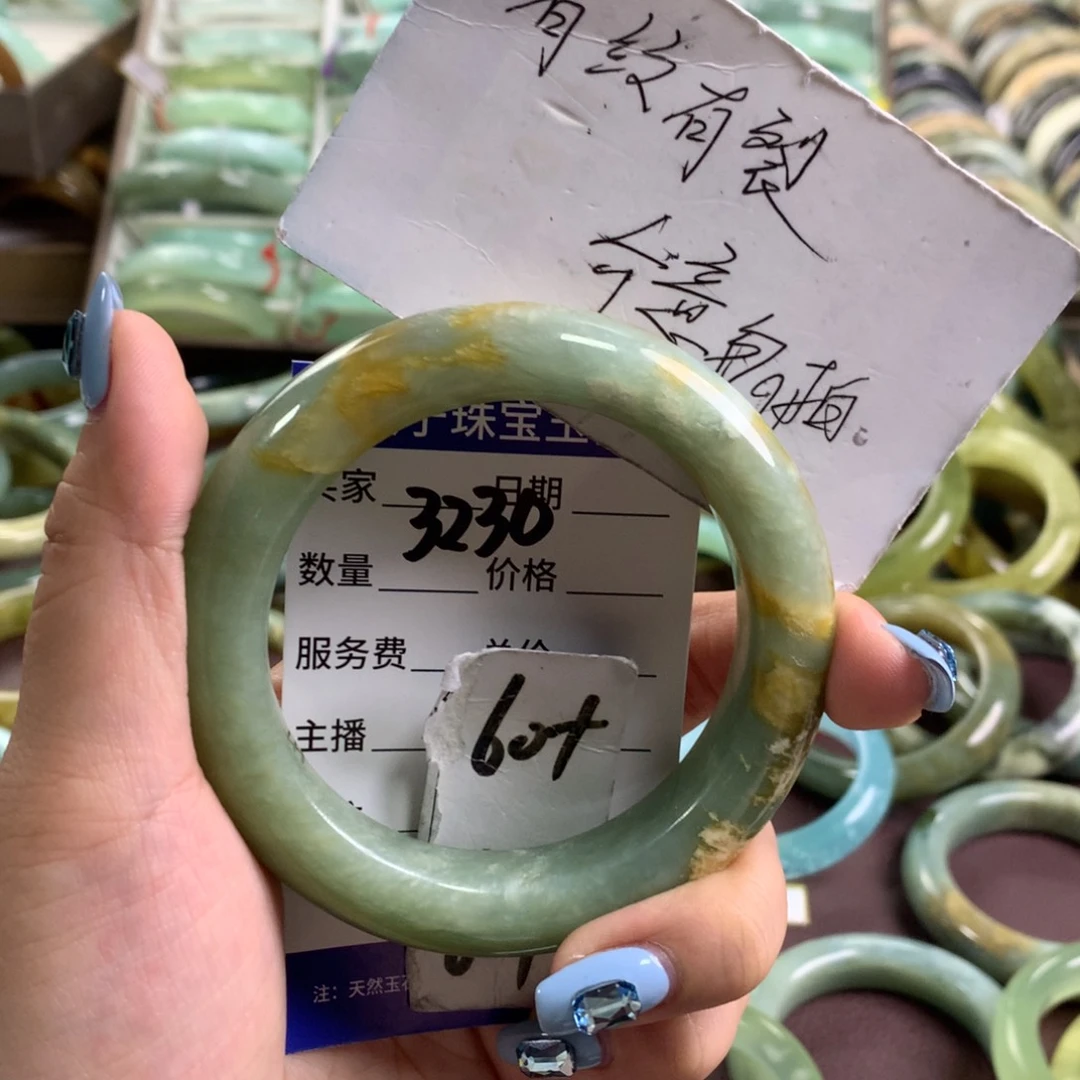 有纹有裂
介意勿拍.
珠宝玉
家 日期
3230
数量 价格
服务费 总价
60+
主播
注: 天然玉石